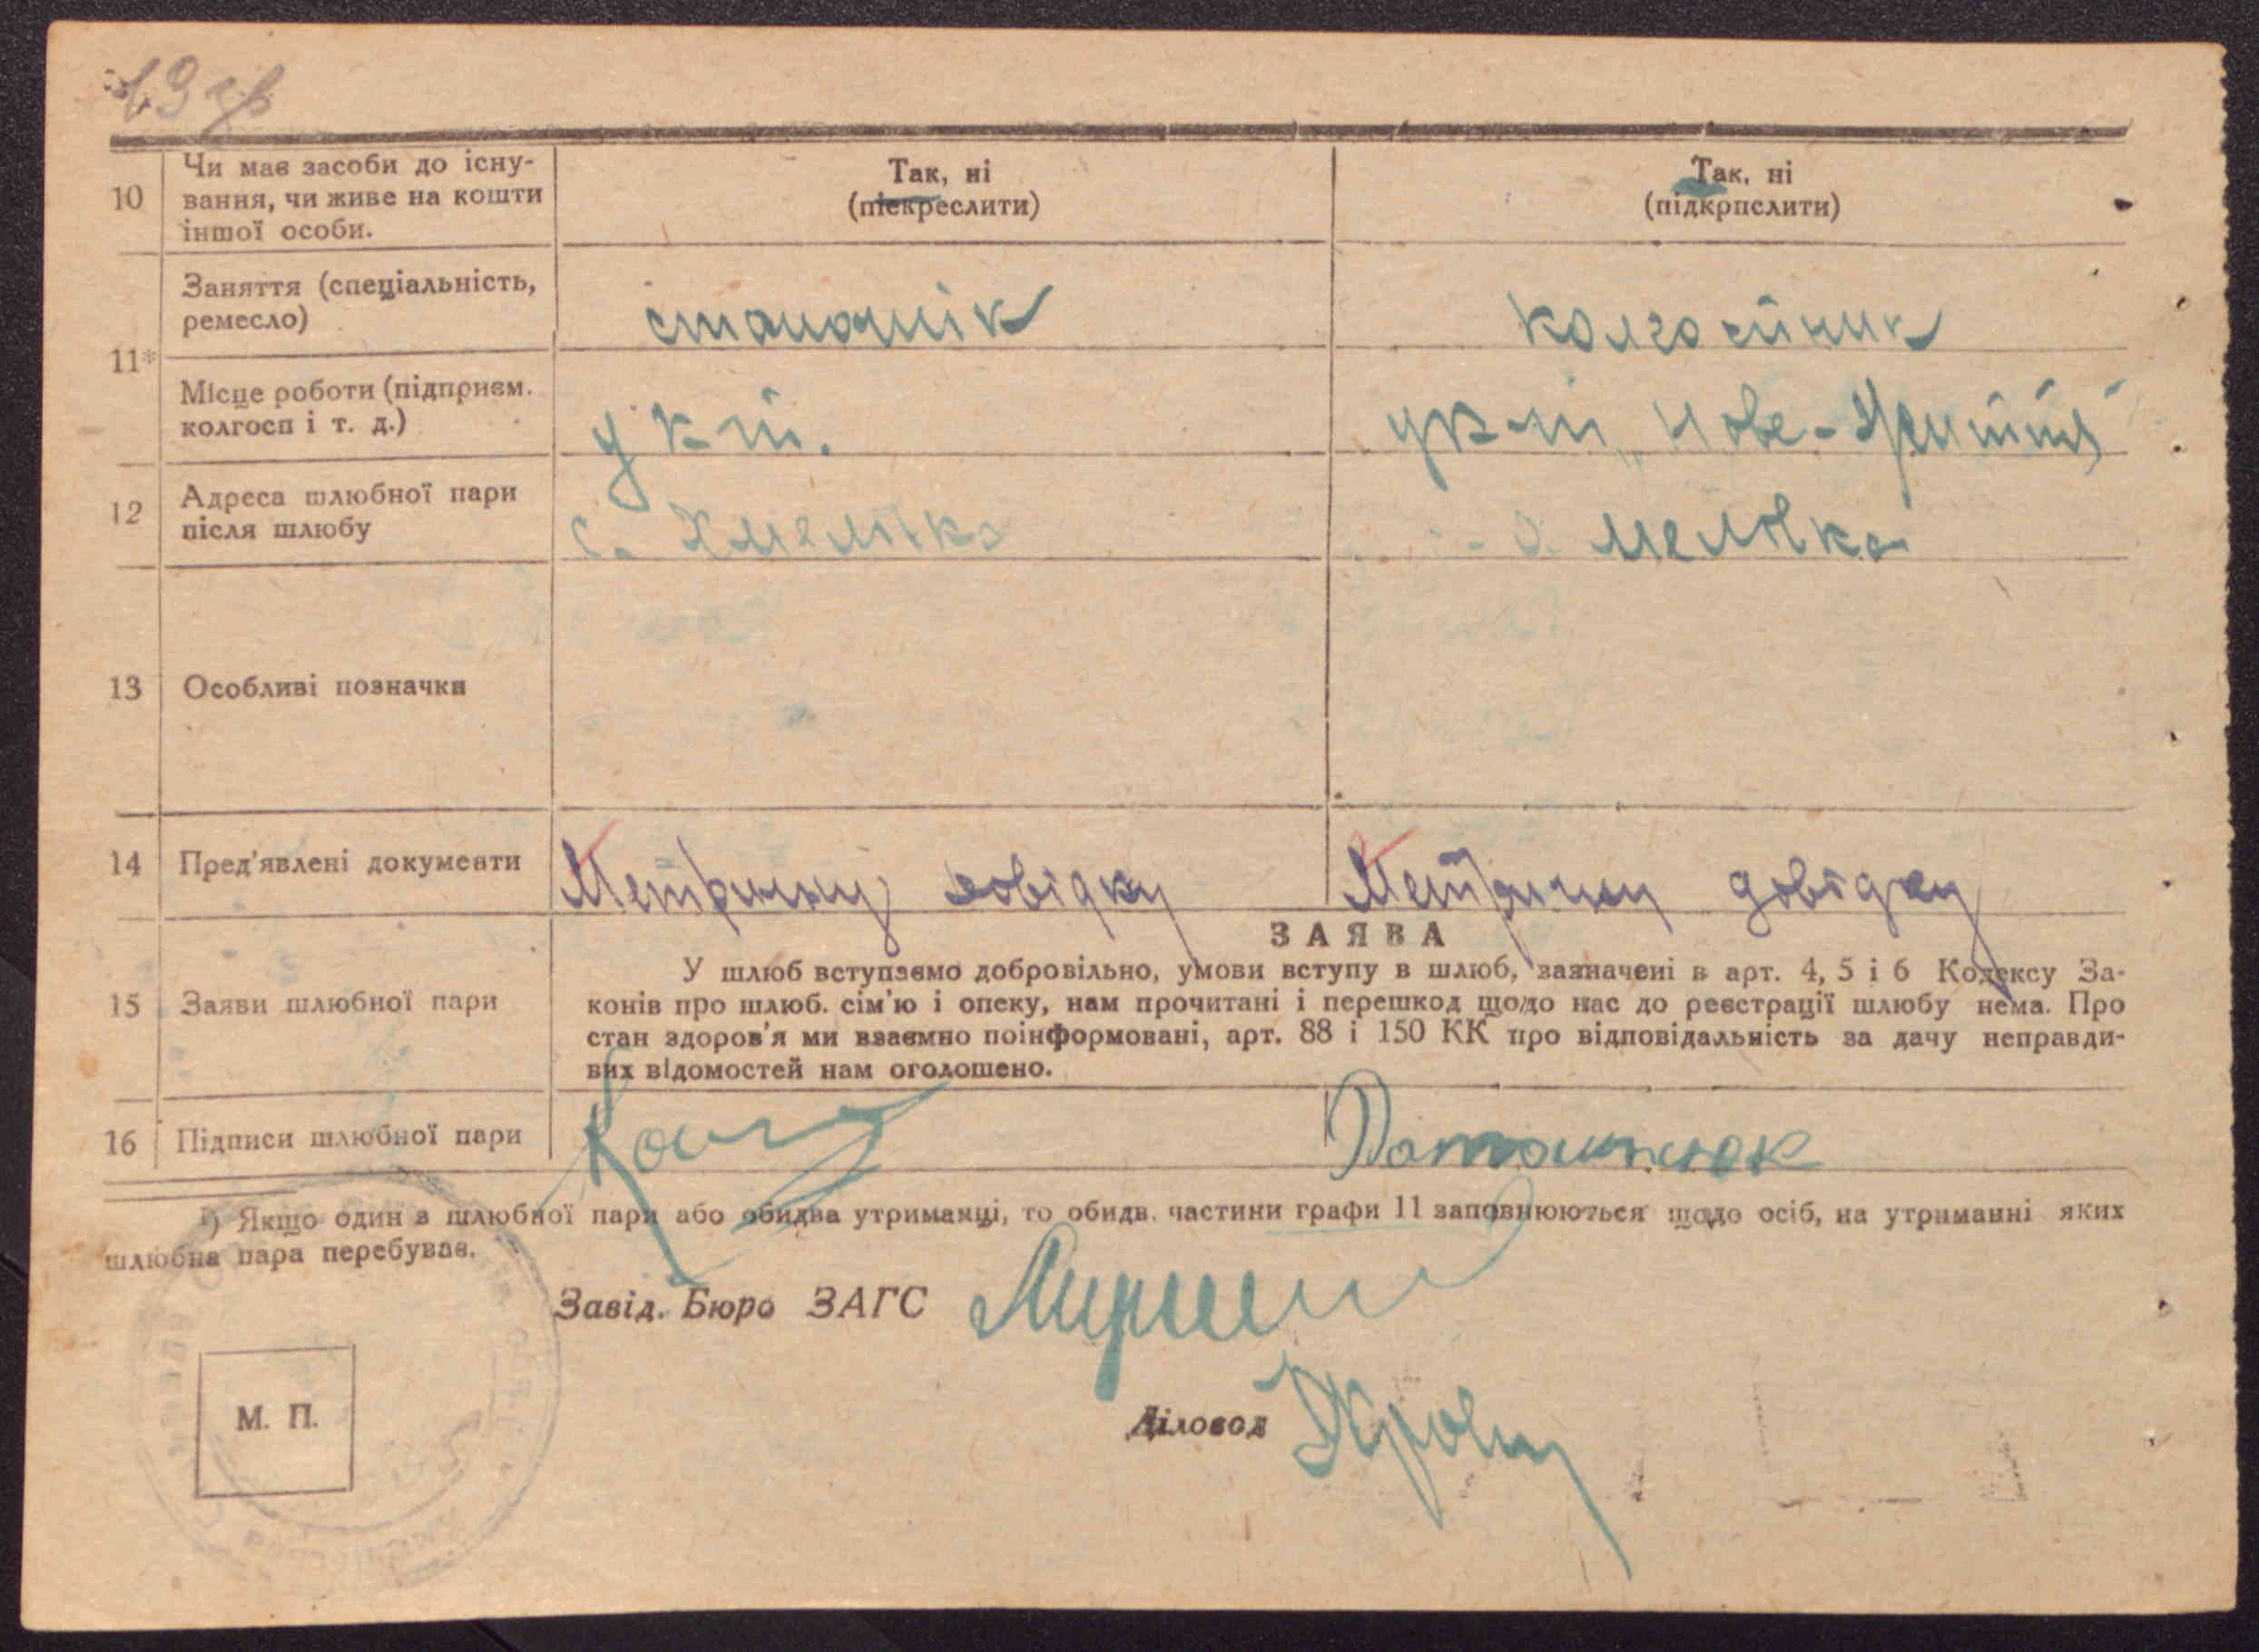 10
Чи має засоби до існу-
вання, чи живе на кошти
іншої особи.
Так, ні
(піекреслити)
Так, ні
(підкрпслити)
11*
Заняття (спеціальність,
ремесло)
колгоспник
Місце роботи (підприєм.
колгосп і т. д.)
у к-ті.
у к-ті „Нове-Життя"
12
Адреса шлюбної пари
після шлюбу
с. Хмелівка
мелівка
13
Особливі позначки
14
Пред'явлені документи
Метричну довідку
Метричну довідку
15
Заяви шлюбної пари
ЗАЯВА
У шлюб вступаємо добровільно, умови вступу в шлюб, зазначені в арт. 4, 5 і 6 Кодексу За-
конів про шлюб. сім'ю і опеку, нам прочитані і перешкод щодо нас до реєстрації шлюбу нема. Про
стан здоров'я ми взаємно поінформовані, арт. 88 і 150 КК про відповідальність за дачу неправди-
вих відомостей нам оголошено.
16
Підписи шлюбної пари
*) Якщо один з шлюбної пари або обидва утриманці, то обидв. частини графи 11 заповнюються щодо осіб, на утриманні яких
шлюбна пара перебуває.
Завід. Бюро ЗАГС
М. П.
Діловод